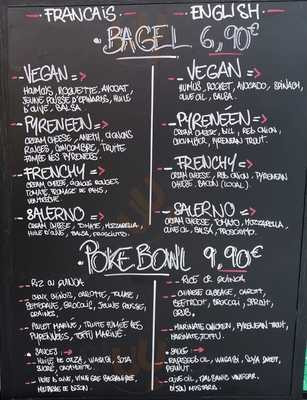 - FRANCAIS - - ENGLISH -
BAGEL 6,90€
-- VEGAN =>
HOUMOUS, ROQUETTE, AVOCAT,
JEUNE POUSSE D'EPINARDS, HUILE
D'OLIVE, SALSA.
-- PYRENEEN =>
CREAM CHEESE, ANETH, OIGNONS
ROUGES, CONCOMBRE, TRUITE
FUMÉE DES PYRENEES.
-- FRENCHY =>
CREAM CHEESE, OIGNONS ROUGES,
TOMATE, FROMAGE DE PAYS,
VENTRECHE
-- SALERNO =>
CREAM CHEESE, TOMATE, MOZZARELLA,
HUILE D'OLIVE, SALSA, PROSCIUTTO.
-- VEGAN =>
HUMUS, ROCKET, AVOCADO, SPINACH,
OLIVE OIL, SALSA.
-- PYRENEEN =>
CREAM CHEESE, DILL, RED ONION,
CUCUMBER, PYRENEAN TROUT.
-- FRENCHY =>
CREAM CHEESE, RED ONION, PYRENEAN
CHEESE, BACON (LOCAL).
-- SALERNO =>
CREAM CHEESE, TOMATO, MOZZARELLA,
OLIVE OIL, SALSA, PROSCIUTTO.
POKE BOWL 9,90€
-- RIZ OU QUINOA
-- CHOUX CHINOIS, CAROTTE, TOMATE,
BETTERAVE, BROCOLIS, JEUNE POUSSE,
GRAINES.
-- POULET MARINÉ, TRUITE FUMÉE DES
PYRENNEES, TOFFU MARINÉ.
SAUCES
-- HUILE DE COLZA, WASABI, SOJA
SUCRÉ, CACAHUETE.
-- HUILE D'OLIVE, VINAIGRE BALSAMIQUE,
MOUTARDE DE DIJON.
-- RICE OR QUINOA
-- CHINESE CABBAGE, CARROT,
BEETROOT, BROCOLI, SPROUT,
GRUB.
-- MARINATE CHICKEN, PYRENEAN TROUT,
MARINATE TOFFU.
SAUCE
-- RAPESEED OIL, WASABI, SOJA SWEET,
PEANUT.
-- OLIVE OIL, BALSAMIC VINEGAR
DIJON MUSTARD.